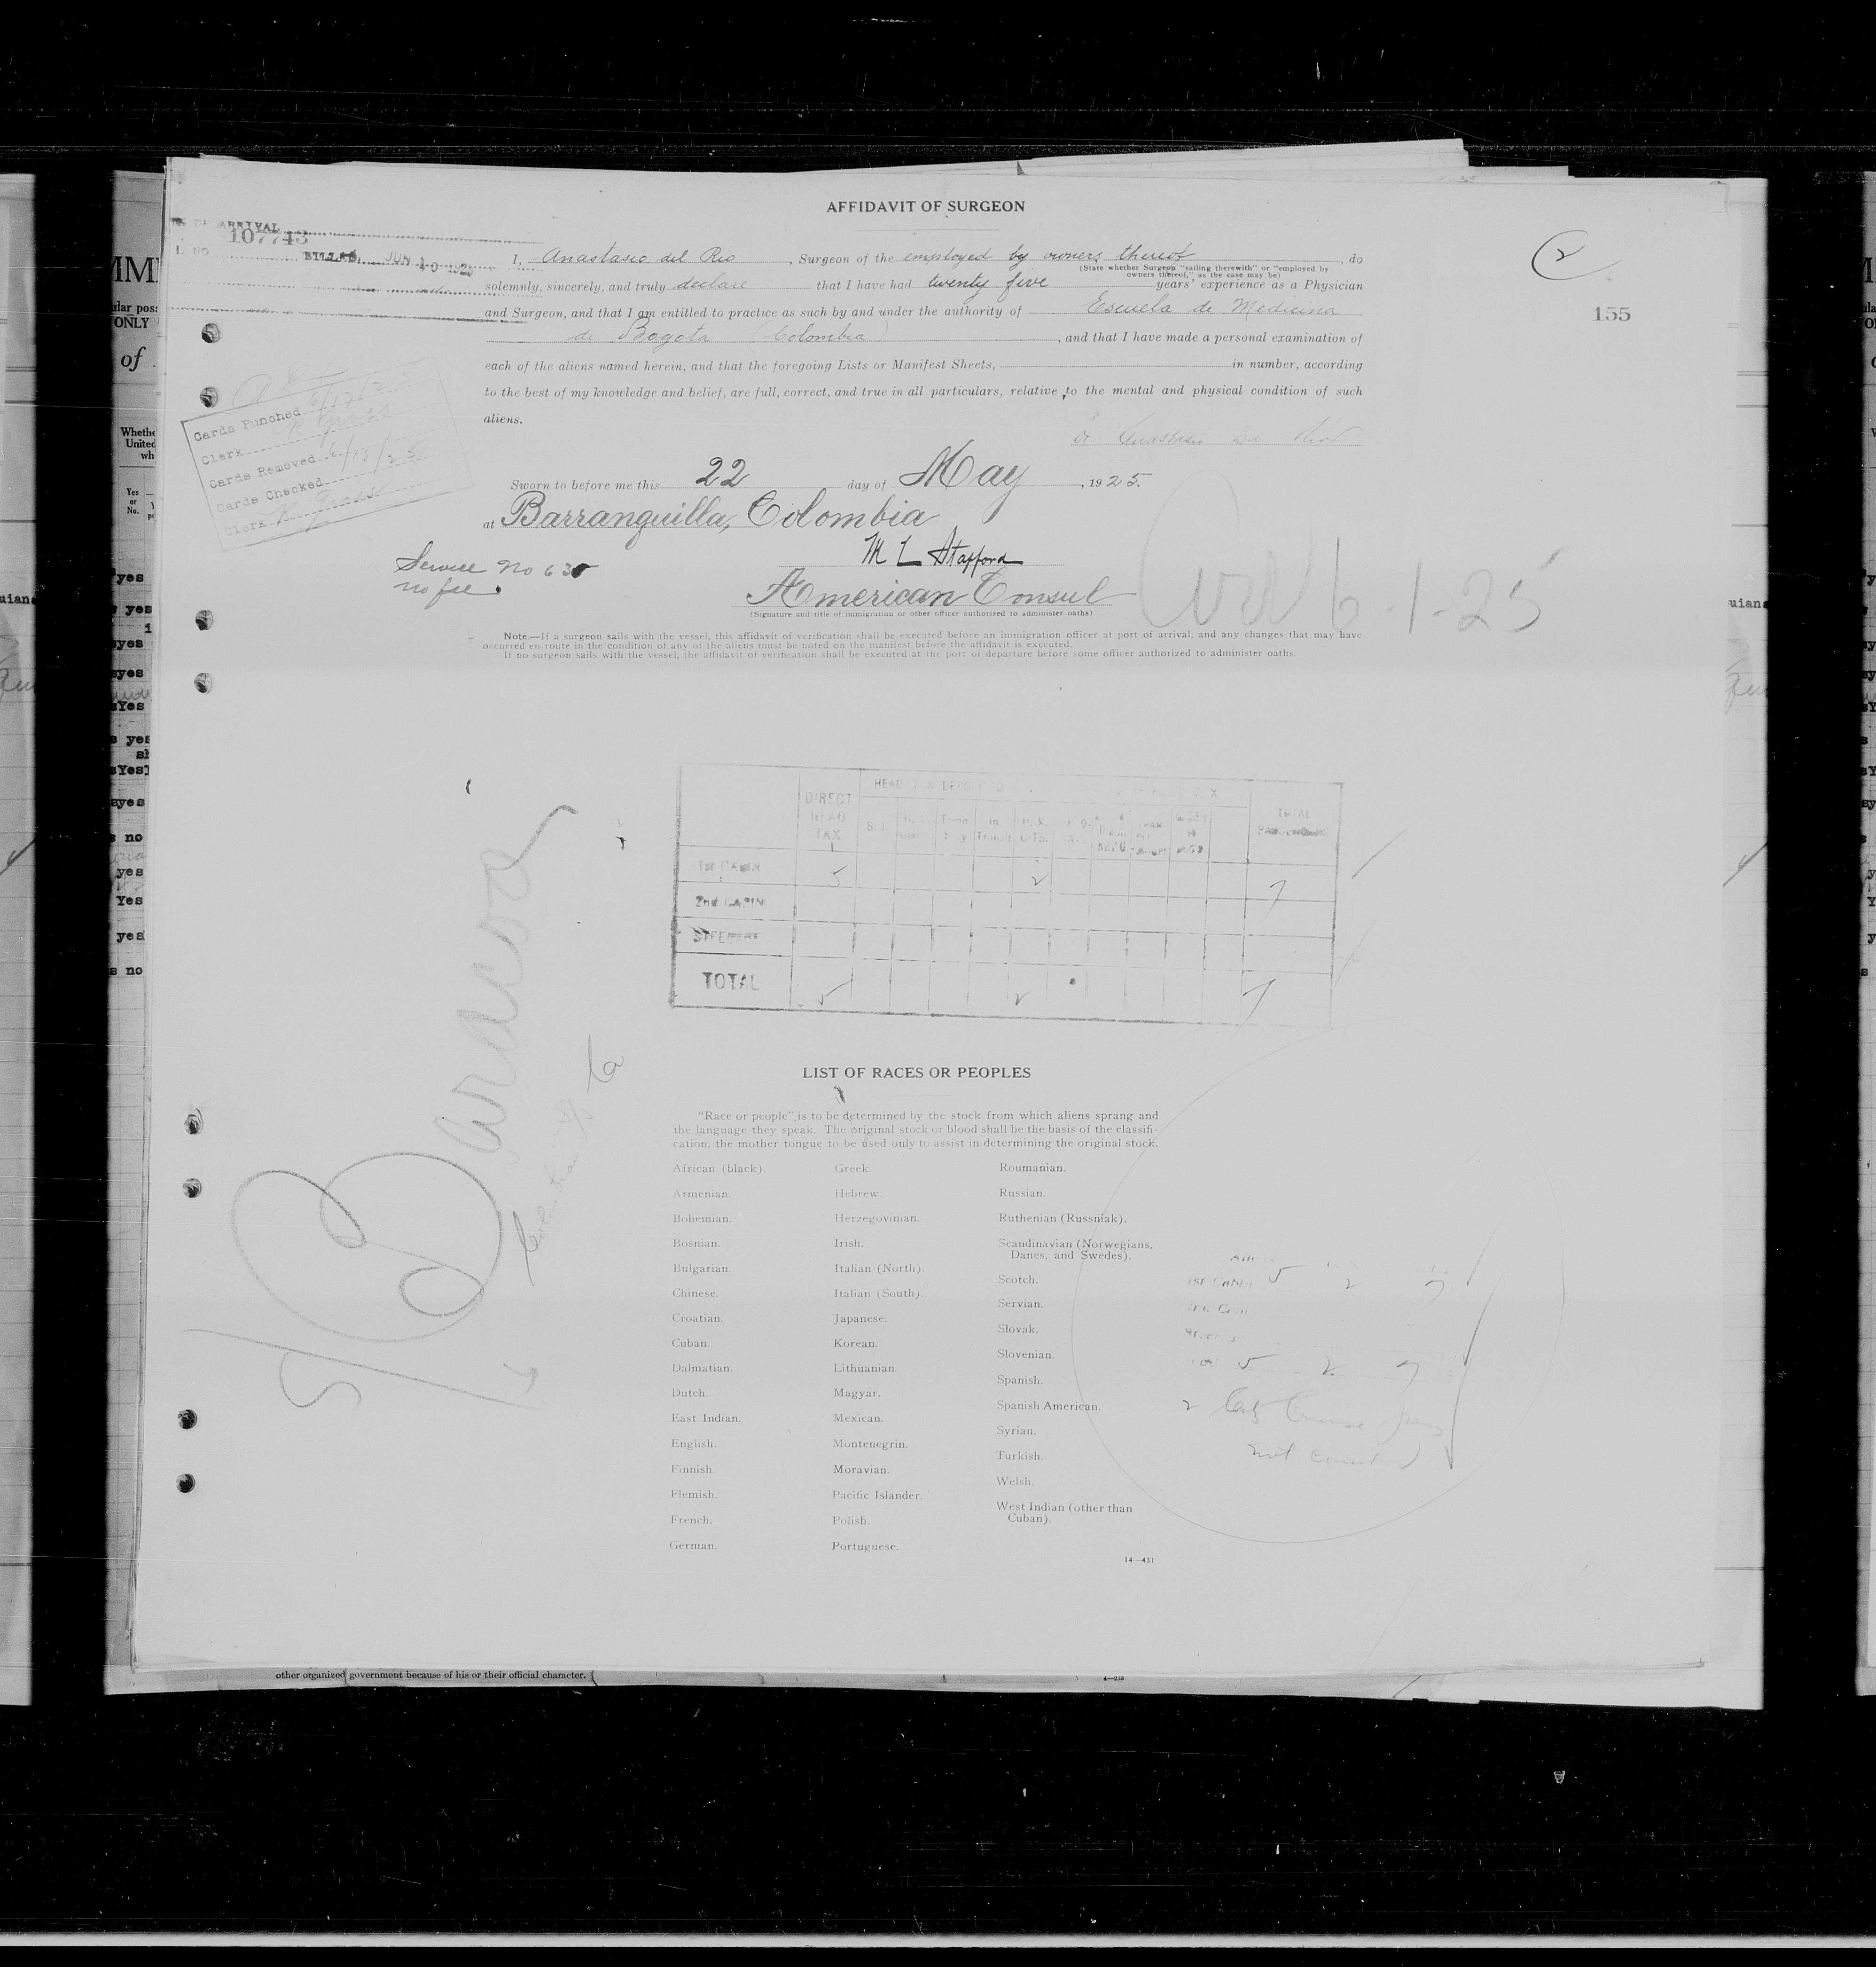 AFFIDAVIT OF SURGEON
OF ARRIVAL
107743
BILLED JUN 10 1925
2
155
I, Anastasio del Rio, Surgeon of the employed by owners thereof, do
(State whether Surgeon "sailing therewith" or "employed by
owners thereof," as the case may be)
solemnly, sincerely, and truly declare that I have had twenty five years' experience as a Physician
and Surgeon, and that I am entitled to practice as such by and under the authority of Escuela de Medicina
de Bogota (Colombia), and that I have made a personal examination of
each of the aliens named herein, and that the foregoing Lists or Manifest Sheets, in number, according
to the best of my knowledge and belief, are full, correct, and true in all particulars, relative to the mental and physical condition of such
aliens.
Cards Punched 6/17/25
Clerk
Cards Removed 6/18/25
Cards Checked
Clerk
Sworn to before me this 22 day of May, 1925.
at Barranquilla, Colombia
M L Stafford
Service No 635
no fee.
American Consul
(Signature and title of immigration or other officer authorized to administer oaths)
6-1-25
Note.—If a surgeon sails with the vessel, this affidavit of verification shall be executed before an immigration officer at port of arrival, and any changes that may have
occurred en route in the condition of any of the aliens must be noted on the manifest before the affidavit is executed.
If no surgeon sails with the vessel, the affidavit of verification shall be executed at the port of departure before some officer authorized to administer oaths.
HEAD TAX
DIRECT HEAD TAX
TOTAL
1st CABIN 5 2 7
2nd CABIN
TOTAL 5 2 7
LIST OF RACES OR PEOPLES
"Race or people" is to be determined by the stock from which aliens sprang and
the language they speak. The original stock or blood shall be the basis of the classifi-
cation, the mother tongue to be used only to assist in determining the original stock.
African (black).
Armenian.
Bohemian.
Bosnian.
Bulgarian.
Chinese.
Croatian.
Cuban.
Dalmatian.
Dutch.
East Indian.
English.
Finnish.
Flemish.
French.
German.
Greek.
Hebrew.
Herzegovinian.
Irish.
Italian (North).
Italian (South).
Japanese.
Korean.
Lithuanian.
Magyar.
Mexican.
Montenegrin.
Moravian.
Pacific Islander.
Polish.
Portuguese.
Roumanian.
Russian.
Ruthenian (Russniak).
Scandinavian (Norwegians,
Danes, and Swedes).
Scotch.
Servian.
Slovak.
Slovenian.
Spanish.
Spanish American.
Syrian.
Turkish.
Welsh.
West Indian (other than
Cuban).
1st Cabin 5 2 7
5 2 7
not counted
14—431
other organized government because of his or their official character.